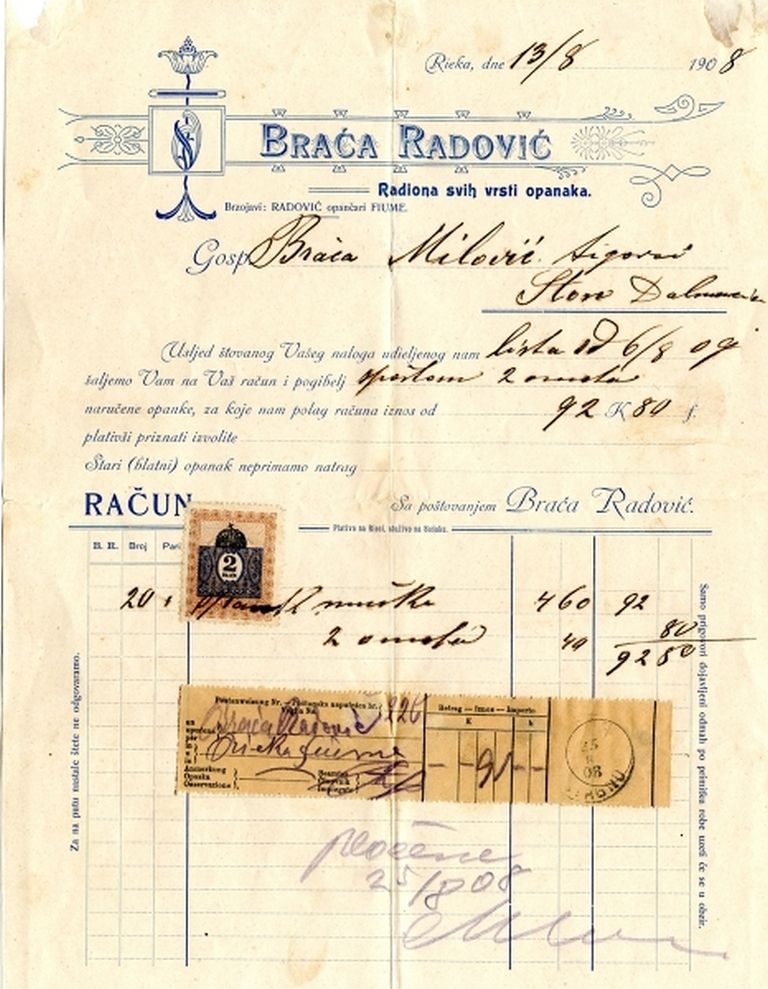 Rieka, dne 13/8 1908
BRAĆA RADOVIĆ
Radiona svih vrsti opanaka.
Brzojavi: RADOVIĆ opančari FIUME.
Gosp Braća Milović
Ston Dalmacia
Usljed štovanog Vašeg naloga udieljenog nam lista od 6/8 09
šaljemo Vam na Vaš račun i pogibelj poštom 2 omota
naručene opanke, za koje nam polag računa iznos od 92 K 80 f.
plativši priznati izvolite
Stari (blatni) opanak neprimamo natrag
RAČUN
Sa poštovanjem Braća Radović.
Plativo na Rieci, utuživo na Sušaku.
B. R. Broj Pari
2
20 muške 460 92
2 omota 40 80
92 80
Za na putu nastale štete ne odgovaramo.
Samo prigovori dojavljeni odmah po primitku robe uzeti će se u obzir.
Postanweisung Nr. — Poštanska naputnica br.
Vaglia No. 226
Betrag — Iznos — Importo
K h
Braća Radović
Rieka Fiume
Anmerkung
Opaska
Osservazione
92
25
8
08
plaćeno
25/8 08